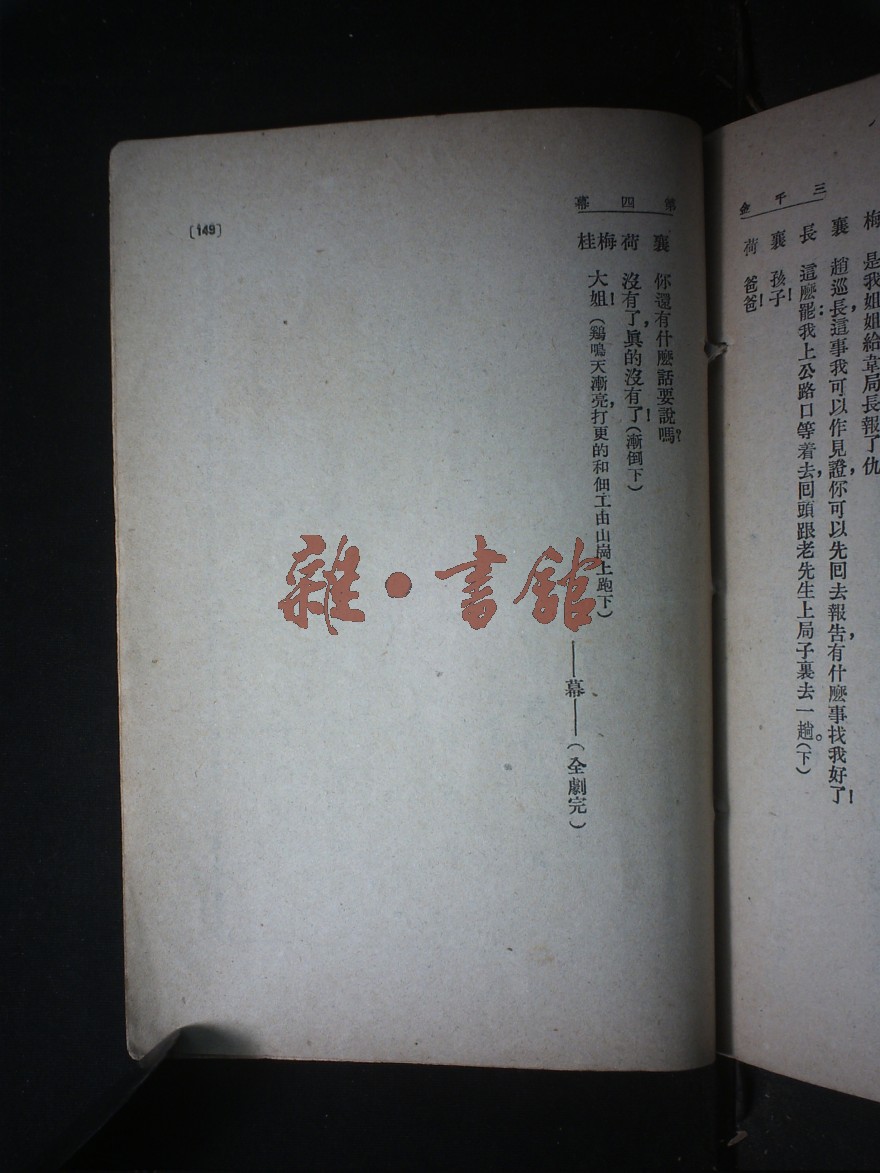 三千金
梅　是我姐姐給韋局長報了仇
襄　趙巡長，這事我可以作見證，你可以先回去報告，有什麽事找我好了！
長　這麽罷：我上公路口等着去，回頭跟老先生上局子裏去一趟。（下）
襄　孩子！
荷　爸爸！
第四幕
襄　你還有什麽話要說嗎？
荷　沒有了，眞的沒有了！（漸倒下）
梅
桂　大姐！（鷄鳴天漸亮，打更的和佃工由山崗上跑下）
——幕——（全劇完）
[149]
雜·書館